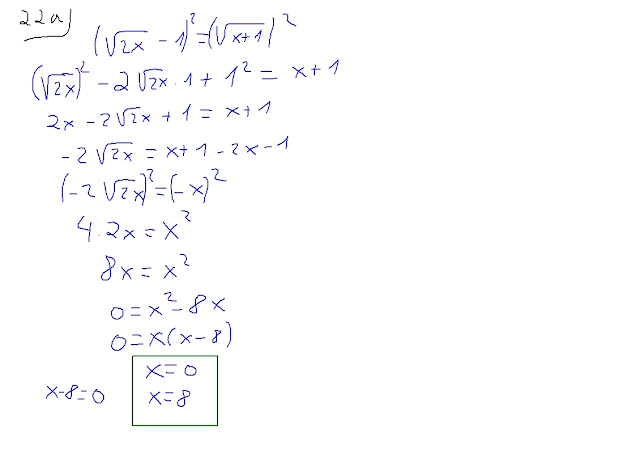 22a)
(√2x - 1)² = (√x+1)²
(√2x)² - 2√2x · 1 + 1² = x+1
2x - 2√2x + 1 = x+1
-2√2x = x+1 - 2x - 1
(-2√2x)² = (-x)²
4·2x = x²
8x = x²
0 = x² - 8x
0 = x(x-8)
x = 0
x-8=0 x=8